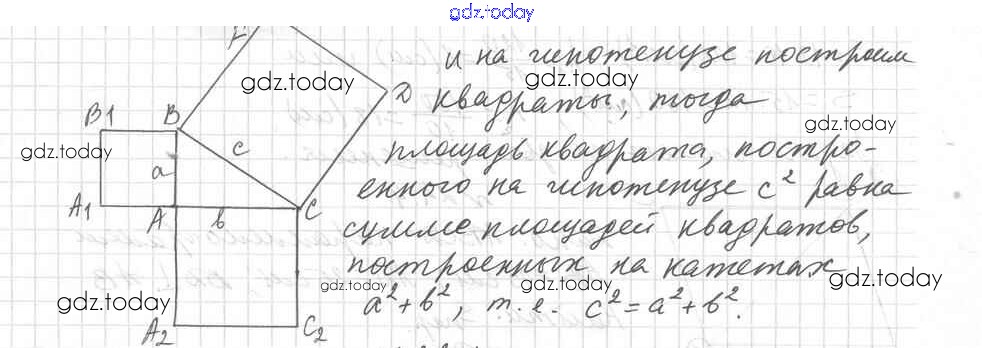 gdz.today
F
и на гипотенузе построим
gdz.today gdz.today
D квадраты, тогда
B1 B
gdz.today
c
gdz.today площадь квадрата, постро-
a
енного на гипотенузе c² равна
A1 A b C
сумме площадей квадратов,
построенных на катетах
gdz.today gdz.today gdz.today gdz.today
a² + b², т. е. c² = a² + b².
A2 C2